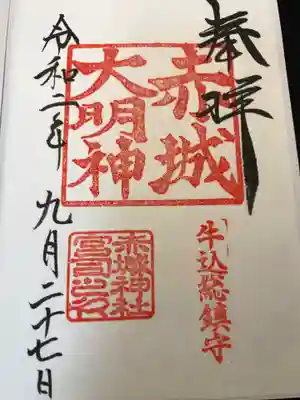 奉拝
牛込総鎮守
赤城
大明神
赤城神社
宮司之印
令和二年九月二十七日